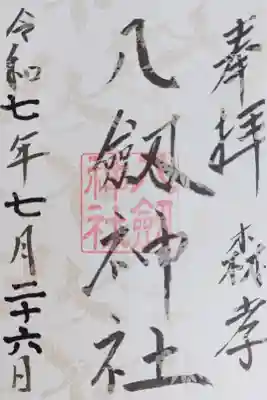 奉拝 森孝
八劔神社
八剱神社
令和七年七月二十六日